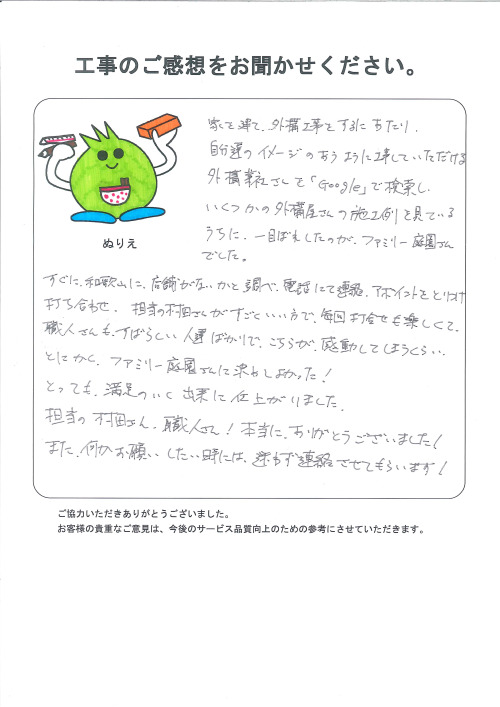 工事のご感想をお聞かせください。
家を建て、外構工事をするにあたり、
自分達のイメージのあうように工事していただける
外構業社さんを「Google」で検索し
いくつかの外構屋さんの施工例を見ている
うちに、一目ぼれしたのが、ファミリー庭園さん
でした。
ぬりえ
すぐに、和歌山に、店舗がないかと調べ、電話にて連絡、アポイントをとりつけ
打ち合わせ、担当の村田さんがすごくいい方で、毎回打合せも楽しくて、
職人さんも、すばらしい人達ばかりで、こちらが、感動してしまうくらい、
とにかく、ファミリー庭園さんに決めてよかった！
とっても、満足のいく出来に仕上がりました。
担当の村田さん、職人さん！本当に、ありがとうございました！
また、何かお願いしたい時には、迷わず連絡させてもらいます！
ご協力いただきありがとうございました。
お客様の貴重なご意見は、今後のサービス品質向上のための参考にさせていただきます。